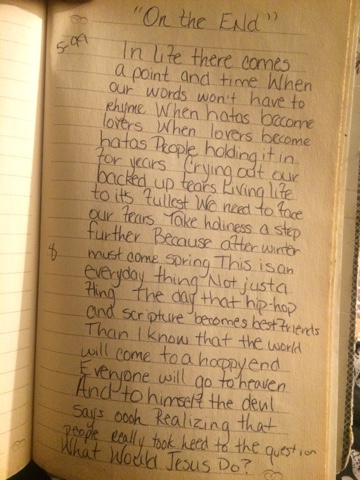 "On the End"
In Life there comes
a point and time When
our words won't have to
rhyme When hatas become
lovers When lovers become
hatas People holding it in
for years Crying out our
backed up tears Living life
to its fullest We need to face
our fears Take holiness a step
further Because after winter
8
must come spring This is an
everyday thing Not just a
thing the day that hip-hop
and scripture becomes best friends
Than I know that the world
will come to a happy end
Everyone will go to heaven
And to himself the devil
says oooh Realizing that
people really took heed to the question
What Would Jesus Do?